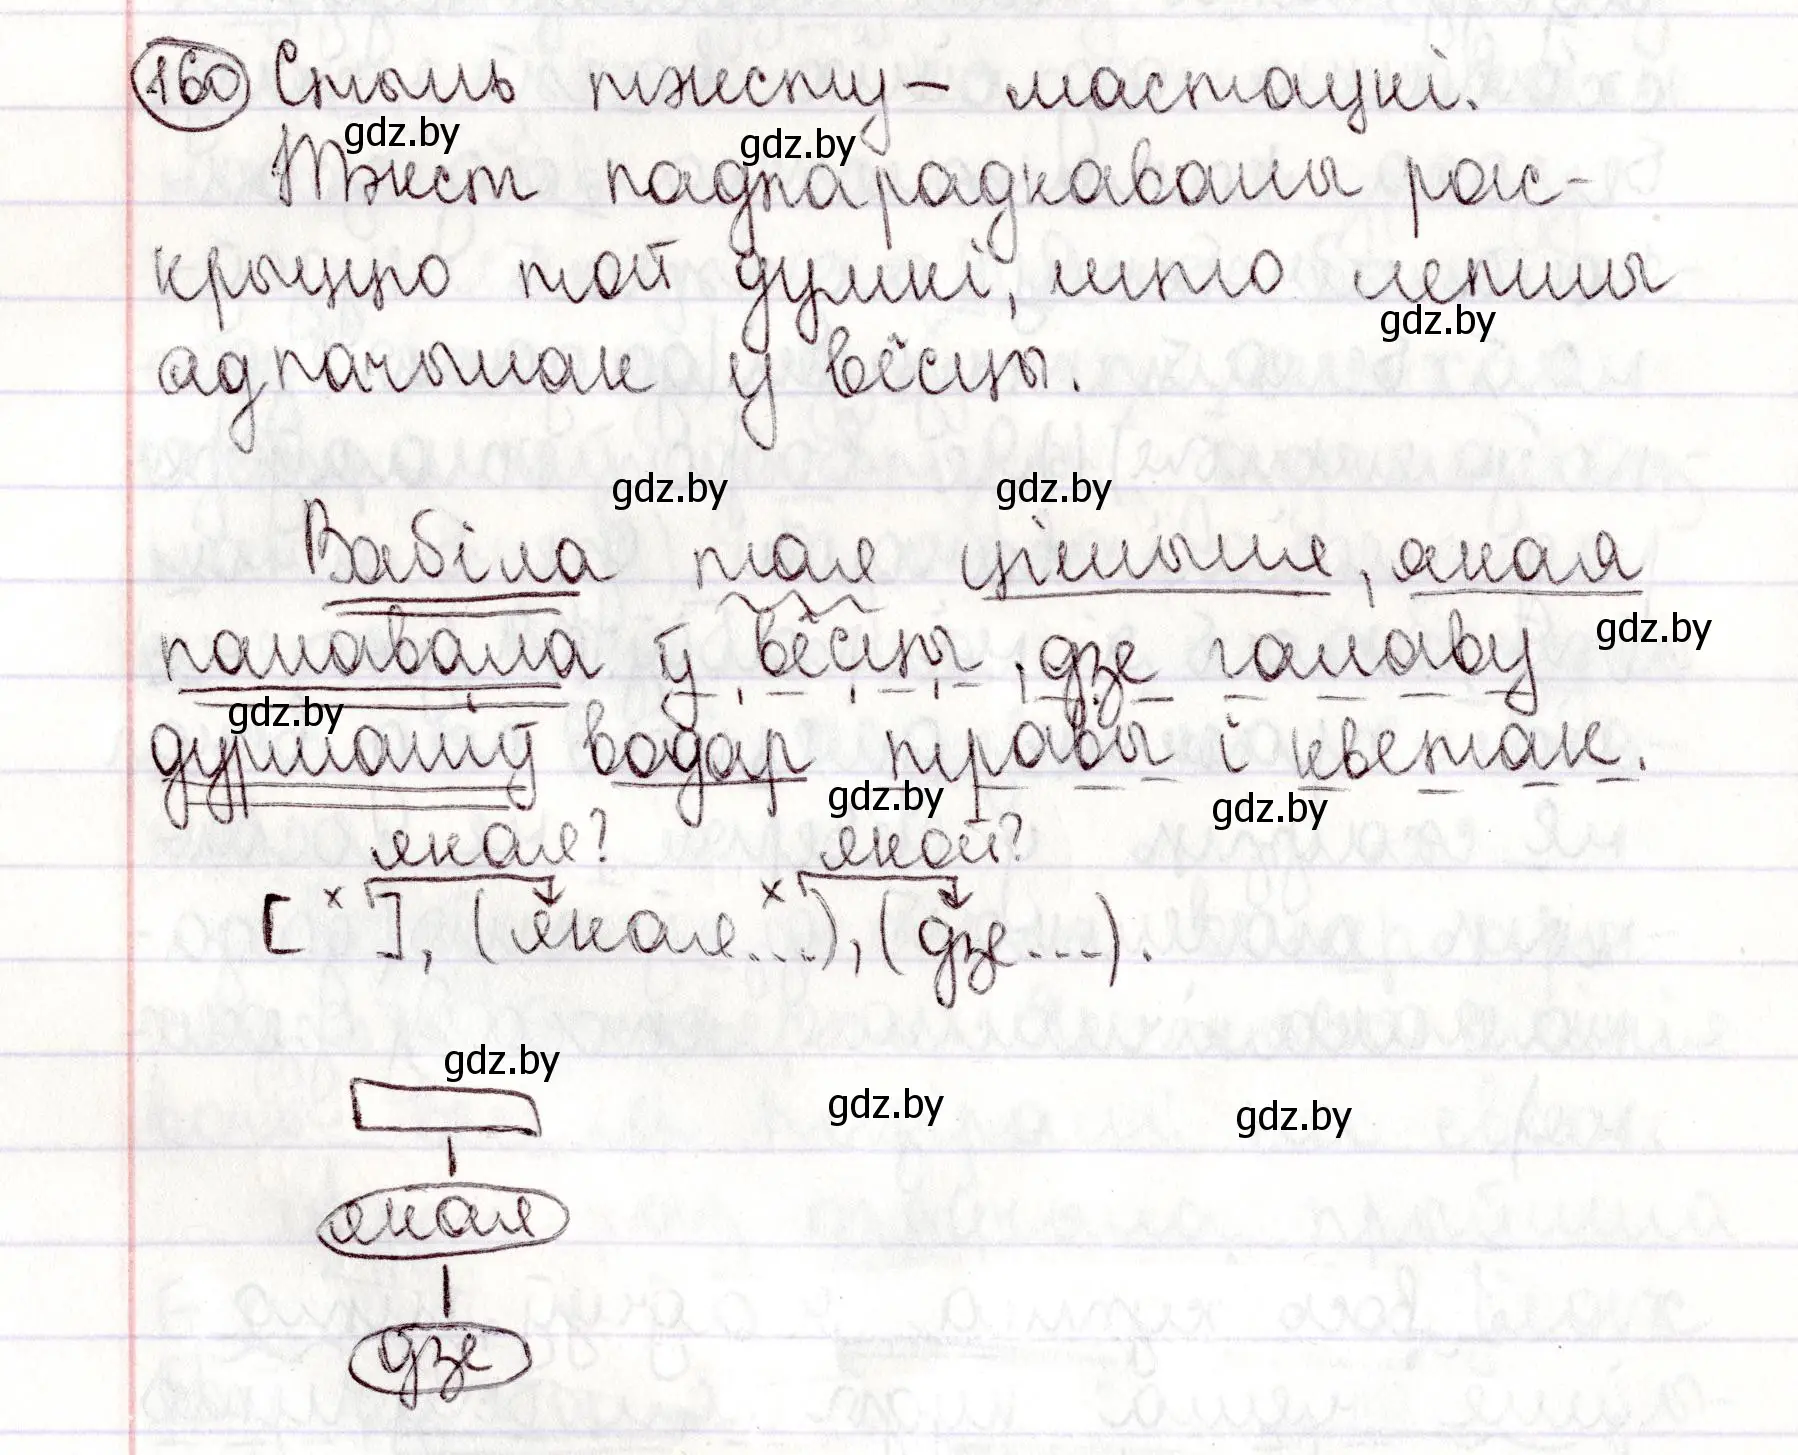 160 Стыль тэксту – мастацкі.
gdz.by gdz.by
Тэкст падпарадкаваны рас-
крыццю той думкі, што лепшы
gdz.by
адпачынак у вёсцы.
gdz.by gdz.by
Вабіла тая цішыня, якая
gdz.by
панавала ў вёсцы, дзе галаву
gdz.by
дурманіў водар травы і кветак.
gdz.by gdz.by
якая? якой?
[ x ], (якая...x), (дзе...).
gdz.by
gdz.by gdz.by
якая
дзе